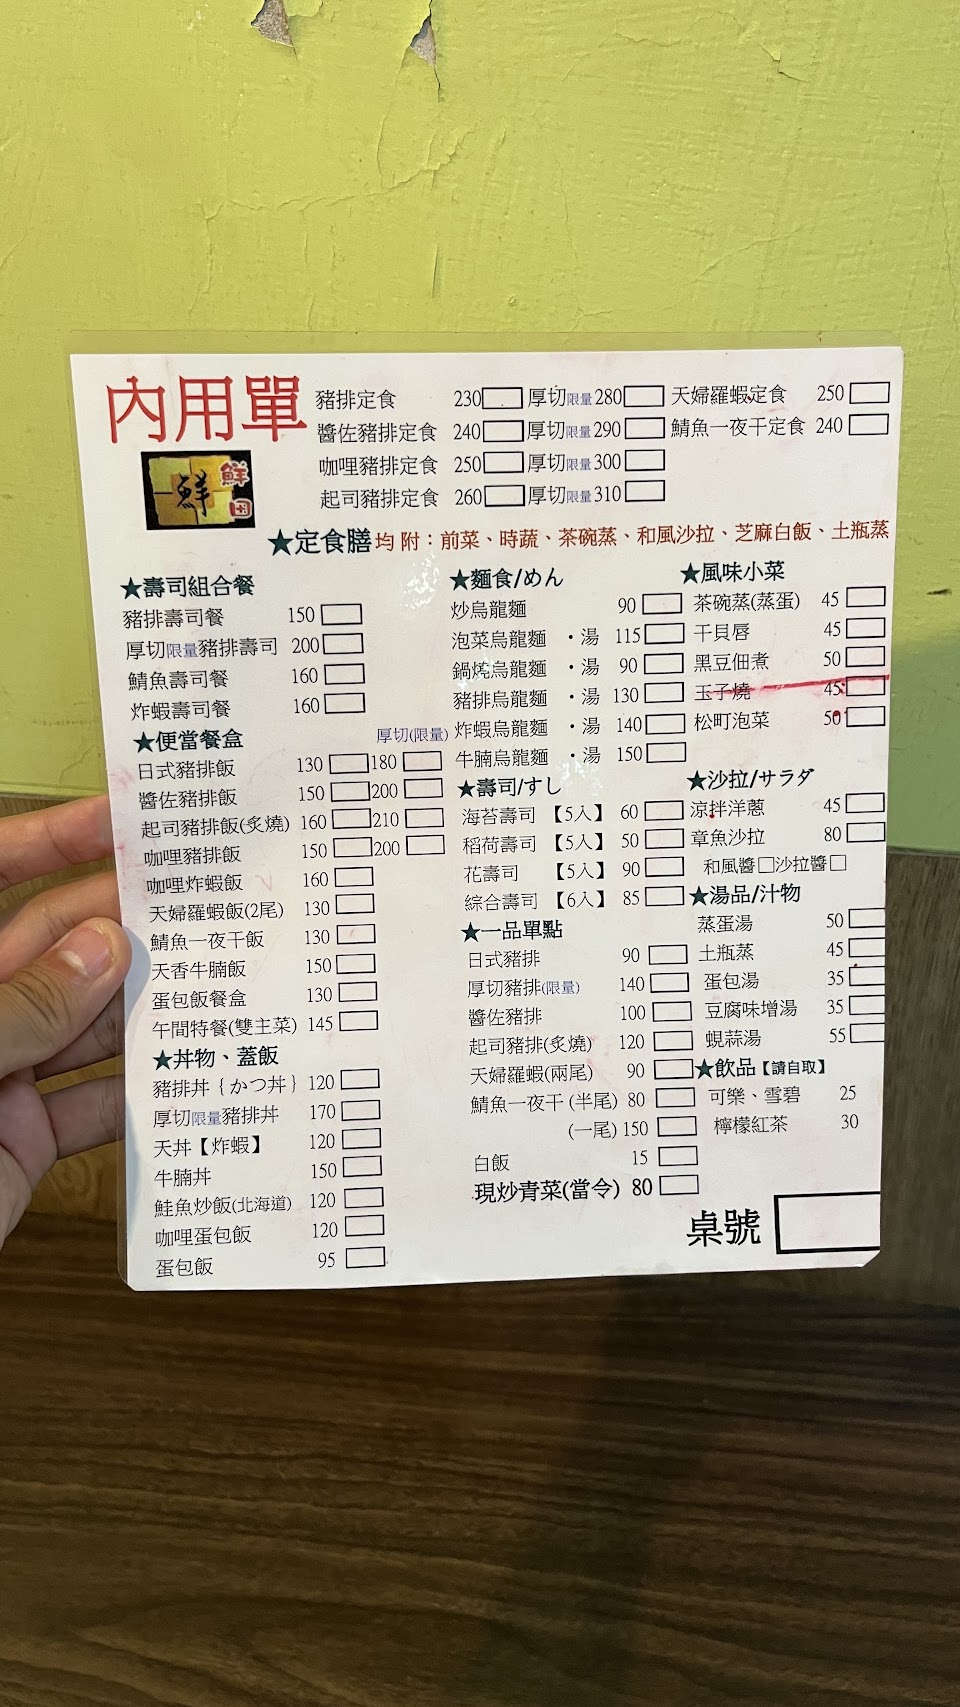 內用單
一鮮
鮮
豬排定食 230 厚切限量280 天婦羅蝦定食 250
醬佐豬排定食 240 厚切限量290 鯖魚一夜干定食 240
咖哩豬排定食 250 厚切限量300
起司豬排定食 260 厚切限量310
★定食膳均附:前菜、時蔬、茶碗蒸、和風沙拉、芝麻白飯、土瓶蒸
★壽司組合餐
豬排壽司餐 150
厚切限量豬排壽司 200
鯖魚壽司餐 160
炸蝦壽司餐 160
★便當餐盒 厚切(限量)
日式豬排飯 130 180
醬佐豬排飯 150 200
起司豬排飯(炙燒) 160 210
咖哩豬排飯 150 200
咖哩炸蝦飯 160
天婦羅蝦飯(2尾) 130
鯖魚一夜干飯 130
天香牛腩飯 150
蛋包飯餐盒 130
午間特餐(雙主菜) 145
★丼物、蓋飯
豬排丼{かつ丼} 120
厚切限量豬排丼 170
天丼【炸蝦】 120
牛腩丼 150
鮭魚炒飯(北海道) 120
咖哩蛋包飯 120
蛋包飯 95
★麵食/めん
炒烏龍麵 90
泡菜烏龍麵 ・湯 115
鍋燒烏龍麵 ・湯 90
豬排烏龍麵 ・湯 130
炸蝦烏龍麵 ・湯 140
牛腩烏龍麵 ・湯 150
★壽司/すし
海苔壽司 【5入】 60
稻荷壽司 【5入】 50
花壽司 【5入】 90
綜合壽司 【6入】 85
★一品單點
日式豬排 90
厚切豬排(限量) 140
醬佐豬排 100
起司豬排(炙燒) 120
天婦羅蝦(兩尾) 90
鯖魚一夜干(半尾) 80
(一尾) 150
白飯 15
現炒青菜(當令) 80
★風味小菜
茶碗蒸(蒸蛋) 45
干貝唇 45
黑豆佃煮 50
玉子燒 45
松町泡菜 50
★沙拉/サラダ
涼拌洋蔥 45
章魚沙拉 80
和風醬□沙拉醬□
★湯品/汁物
蒸蛋湯 50
土瓶蒸 45
蛋包湯 35
豆腐味增湯 35
蜆蒜湯 55
★飲品【請自取】
可樂、雪碧 25
檸檬紅茶 30
桌號